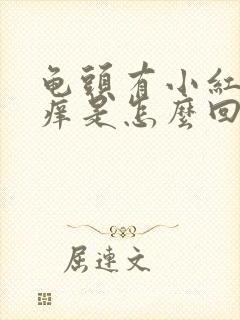 龟頭有小紅
痒是怎麼回
屈連文